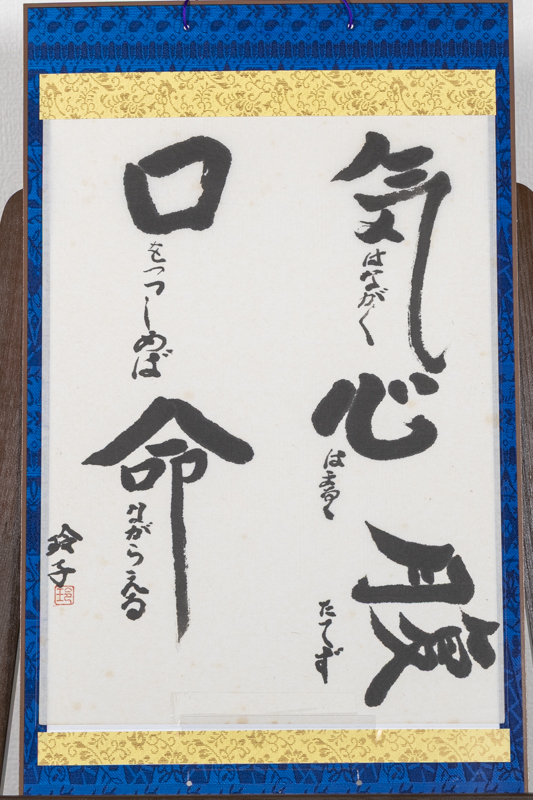 気はながく
心はまるく
腹たてず
口をつつしめば
命ながらえる
玲子
玲